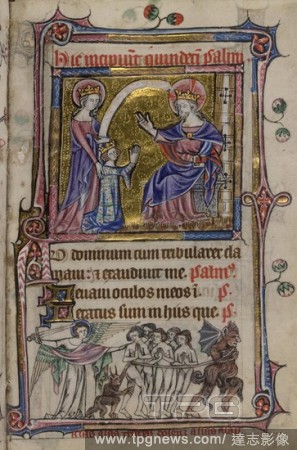 Hic incipiūt quindecī psalmi
AD dominum cum tribularer cla
maui: & exaudiuit me. psalm⁹.
Leuaui oculos meos i. p̄.
Letatus sum in hiis que. p̄.
TPG
www.tpgnews.com / 達志影像